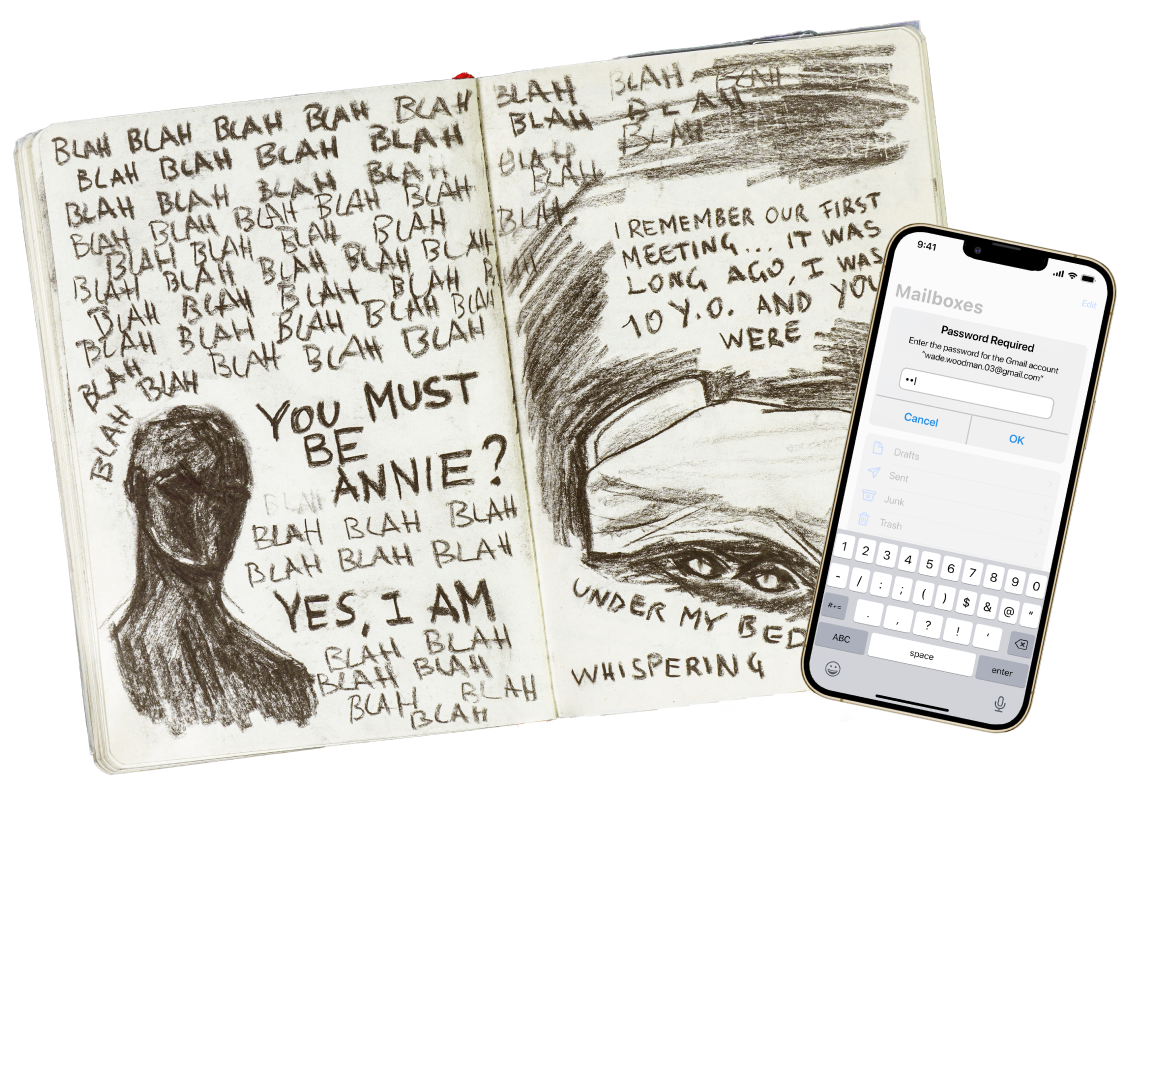 BLAH BLAH BLAH BLAH BLAH
BLAH BLAH BLAH BLAH
BLAH BLAH BLAH BLAH
BLAH BLAH BLAH BLAH BLAH
BLAH BLAH BLAH BLAH
BLAH BLAH BLAH BLAH BLAH
BLAH BLAH BLAH BLAH
BLAH BLAH BLAH BLAH BLAH
BLAH BLAH BLAH BLAH
BLAH BLAH BLAH BLAH
BLAH BLAH
BLAH
YOU MUST
BE
ANNIE?
BLAH
BLAH BLAH BLAH
BLAH BLAH BLAH
YES, I AM
BLAH BLAH
BLAH BLAH
BLAH BLAH
BLAH
BLAH BLAH BLAH
BLAH BLAH
BLAH
BLAH
BLAH
BLAH
I REMEMBER OUR FIRST
MEETING... IT WAS
LONG AGO, I WAS
10 Y.O. AND YOU
WERE
UNDER MY BED
WHISPERING
9:41
Edit
Mailboxes
Password Required
Enter the password for the Gmail account
"wade.woodman.03@gmail.com"
••
Cancel OK
Drafts
Sent
Junk
Trash
1 2 3 4 5 6 7 8 9 0
- / : ; ( ) $ & @ "
#+= . , ? ! '
ABC space enter